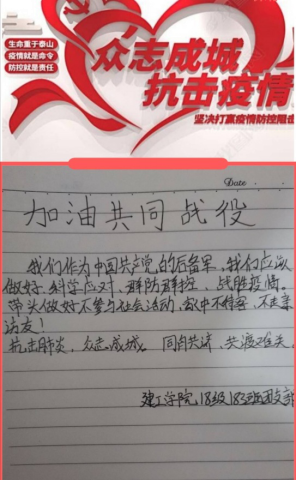 生命重于泰山
疫情就是命令
防控就是责任
众志成城
抗击疫情
坚决打赢疫情防控阻击
Date.
加油共同战役
我们作为中国共产党的后备军,我们应该
做好 科学应对,群防群控,战胜疫情。
带头做好不参与社会活动,家中不待客,不走亲
访友!
抗击肺炎,众志成城。同舟共济,共渡难关
建工学院,18级183班团支部